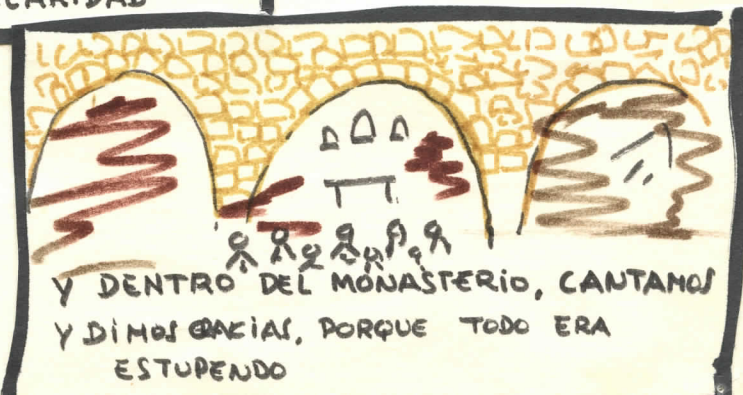 CARIDAD
Y DENTRO DEL MONASTERIO, CANTAMOS
Y DIMOS GRACIAS, PORQUE TODO ERA
ESTUPENDO